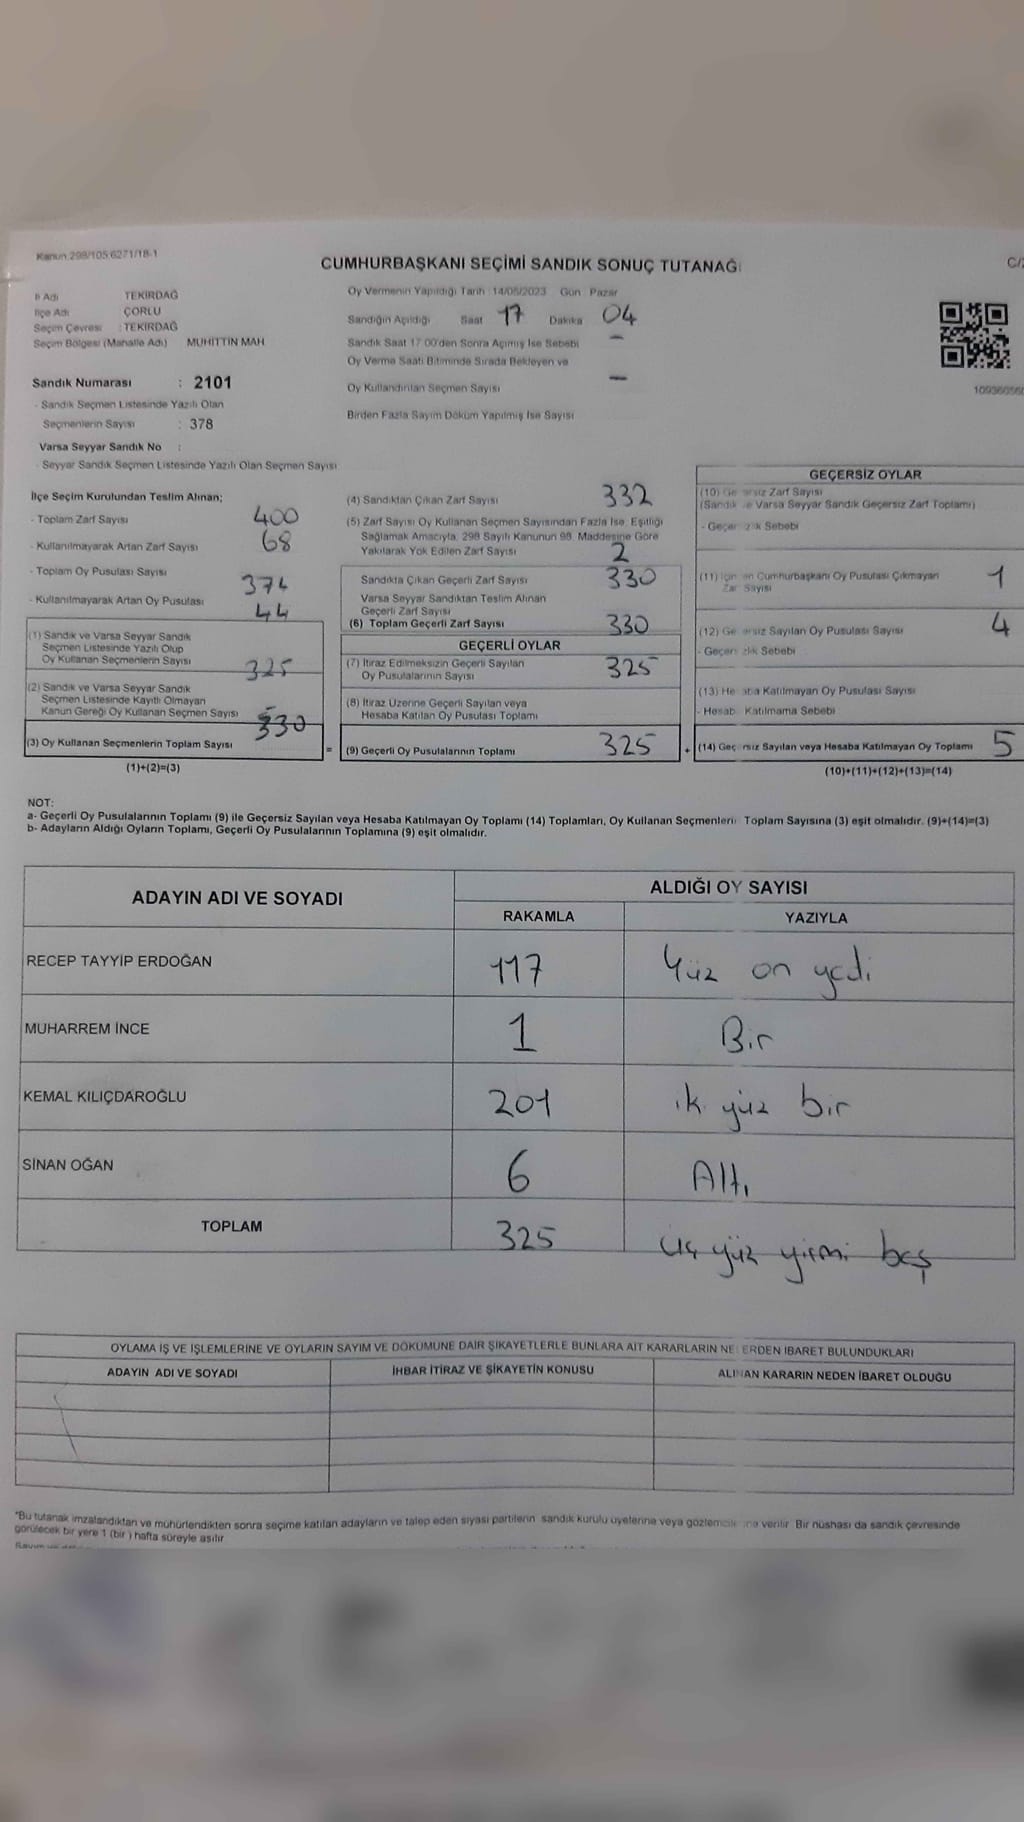 Kanun 298/105 6271/18-1
CUMHURBAŞKANI SEÇİMİ SANDIK SONUÇ TUTANAĞI
C/2
İl Adı TEKİRDAĞ
İlçe Adı ÇORLU
Seçim Çevresi : TEKİRDAĞ
Seçim Bölgesi (Mahalle Adı) MUHİTTİN MAH
Sandık Numarası : 2101
- Sandık Seçmen Listesinde Yazılı Olan
Seçmenlerin Sayısı : 378
Varsa Seyyar Sandık No :
- Seyyar Sandık Seçmen Listesinde Yazılı Olan Seçmen Sayısı
Oy Vermenin Yapıldığı Tarih 14/05/2023 Gün Pazar
Sandığın Açıldığı Saat 17 Dakika 04
Sandık Saat 17 00'den Sonra Açımış İse Sebebi —
Oy Verme Saati Bitiminde Sırada Bekleyen ve
Oy Kullandırılan Seçmen Sayısı —
Birden Fazla Sayım Döküm Yapılmış İse Sayısı
İlçe Seçim Kurulundan Teslim Alınan;
- Toplam Zarf Sayısı 400
- Kullanılmayarak Artan Zarf Sayısı 68
- Toplam Oy Pusulası Sayısı 374
- Kullanılmayarak Artan Oy Pusulası 44
(1) Sandık ve Varsa Seyyar Sandık
Seçmen Listesinde Yazılı Olup
Oy Kullanan Seçmenlerin Sayısı 325
(2) Sandık ve Varsa Seyyar Sandık
Seçmen Listesinde Kayıtlı Olmayan
Kanun Gereği Oy Kullanan Seçmen Sayısı 5
(3) Oy Kullanan Seçmenlerin Toplam Sayısı 330
(1)+(2)=(3)
=
(4) Sandıktan Çıkan Zarf Sayısı 332
(5) Zarf Sayısı Oy Kullanan Seçmen Sayısından Fazla İse, Eşitliği
Sağlamak Amacıyla, 298 Sayılı Kanunun 98. Maddesine Göre
Yakılarak Yok Edilen Zarf Sayısı 2
Sandıkta Çıkan Geçerli Zarf Sayısı 330
Varsa Seyyar Sandıktan Teslim Alınan
Geçerli Zarf Sayısı
(6) Toplam Geçerli Zarf Sayısı 330
GEÇERLİ OYLAR
(7) İtiraz Edilmeksizin Geçerli Sayılan
Oy Pusulalarının Sayısı 325
(8) İtiraz Üzerine Geçerli Sayılan veya
Hesaba Katılan Oy Pusulası Toplamı
(9) Geçerli Oy Pusulalarının Toplamı 325
+
GEÇERSİZ OYLAR
(10) Geçersiz Zarf Sayısı
(Sandık ve Varsa Seyyar Sandık Geçersiz Zarf Toplamı)
- Geçersizlik Sebebi
(11) İçinden Cumhurbaşkanı Oy Pusulası Çıkmayan
Zarf Sayısı 1
(12) Geçersiz Sayılan Oy Pusulası Sayısı 4
- Geçersizlik Sebebi
(13) Hesaba Katılmayan Oy Pusulası Sayısı
- Hesaba Katılmama Sebebi
(14) Geçersiz Sayılan veya Hesaba Katılmayan Oy Toplamı 5
(10)+(11)+(12)+(13)=(14)
NOT:
a- Geçerli Oy Pusulalarının Toplamı (9) ile Geçersiz Sayılan veya Hesaba Katılmayan Oy Toplamı (14) Toplamları, Oy Kullanan Seçmenlerin Toplam Sayısına (3) eşit olmalıdır. (9)+(14)=(3)
b- Adayların Aldığı Oyların Toplamı, Geçerli Oy Pusulalarının Toplamına (9) eşit olmalıdır.
ADAYIN ADI VE SOYADI
ALDIĞI OY SAYISI
RAKAMLA YAZIYLA
RECEP TAYYİP ERDOĞAN 117 Yüz on yedi
MUHARREM İNCE 1 Bir
KEMAL KILIÇDAROĞLU 201 ik yüz bir
SİNAN OĞAN 6 Altı
TOPLAM 325 üç yüz yirmi beş
OYLAMA İŞ VE İŞLEMLERİNE VE OYLARIN SAYIM VE DÖKÜMÜNE DAİR ŞİKAYETLERLE BUNLARA AİT KARARLARIN NELERDEN İBARET BULUNDUKLARI
ADAYIN ADI VE SOYADI İHBAR İTİRAZ VE ŞİKAYETİN KONUSU ALINAN KARARIN NEDEN İBARET OLDUĞU
*Bu tutanak imzalandıktan ve mühürlendikten sonra seçime katılan adayların ve talep eden siyasi partilerin sandık kurulu üyelerine veya gözlemcilerine verilir. Bir nüshası da sandık çevresinde
görülecek bir yere 1 (bir) hafta süreyle asılır